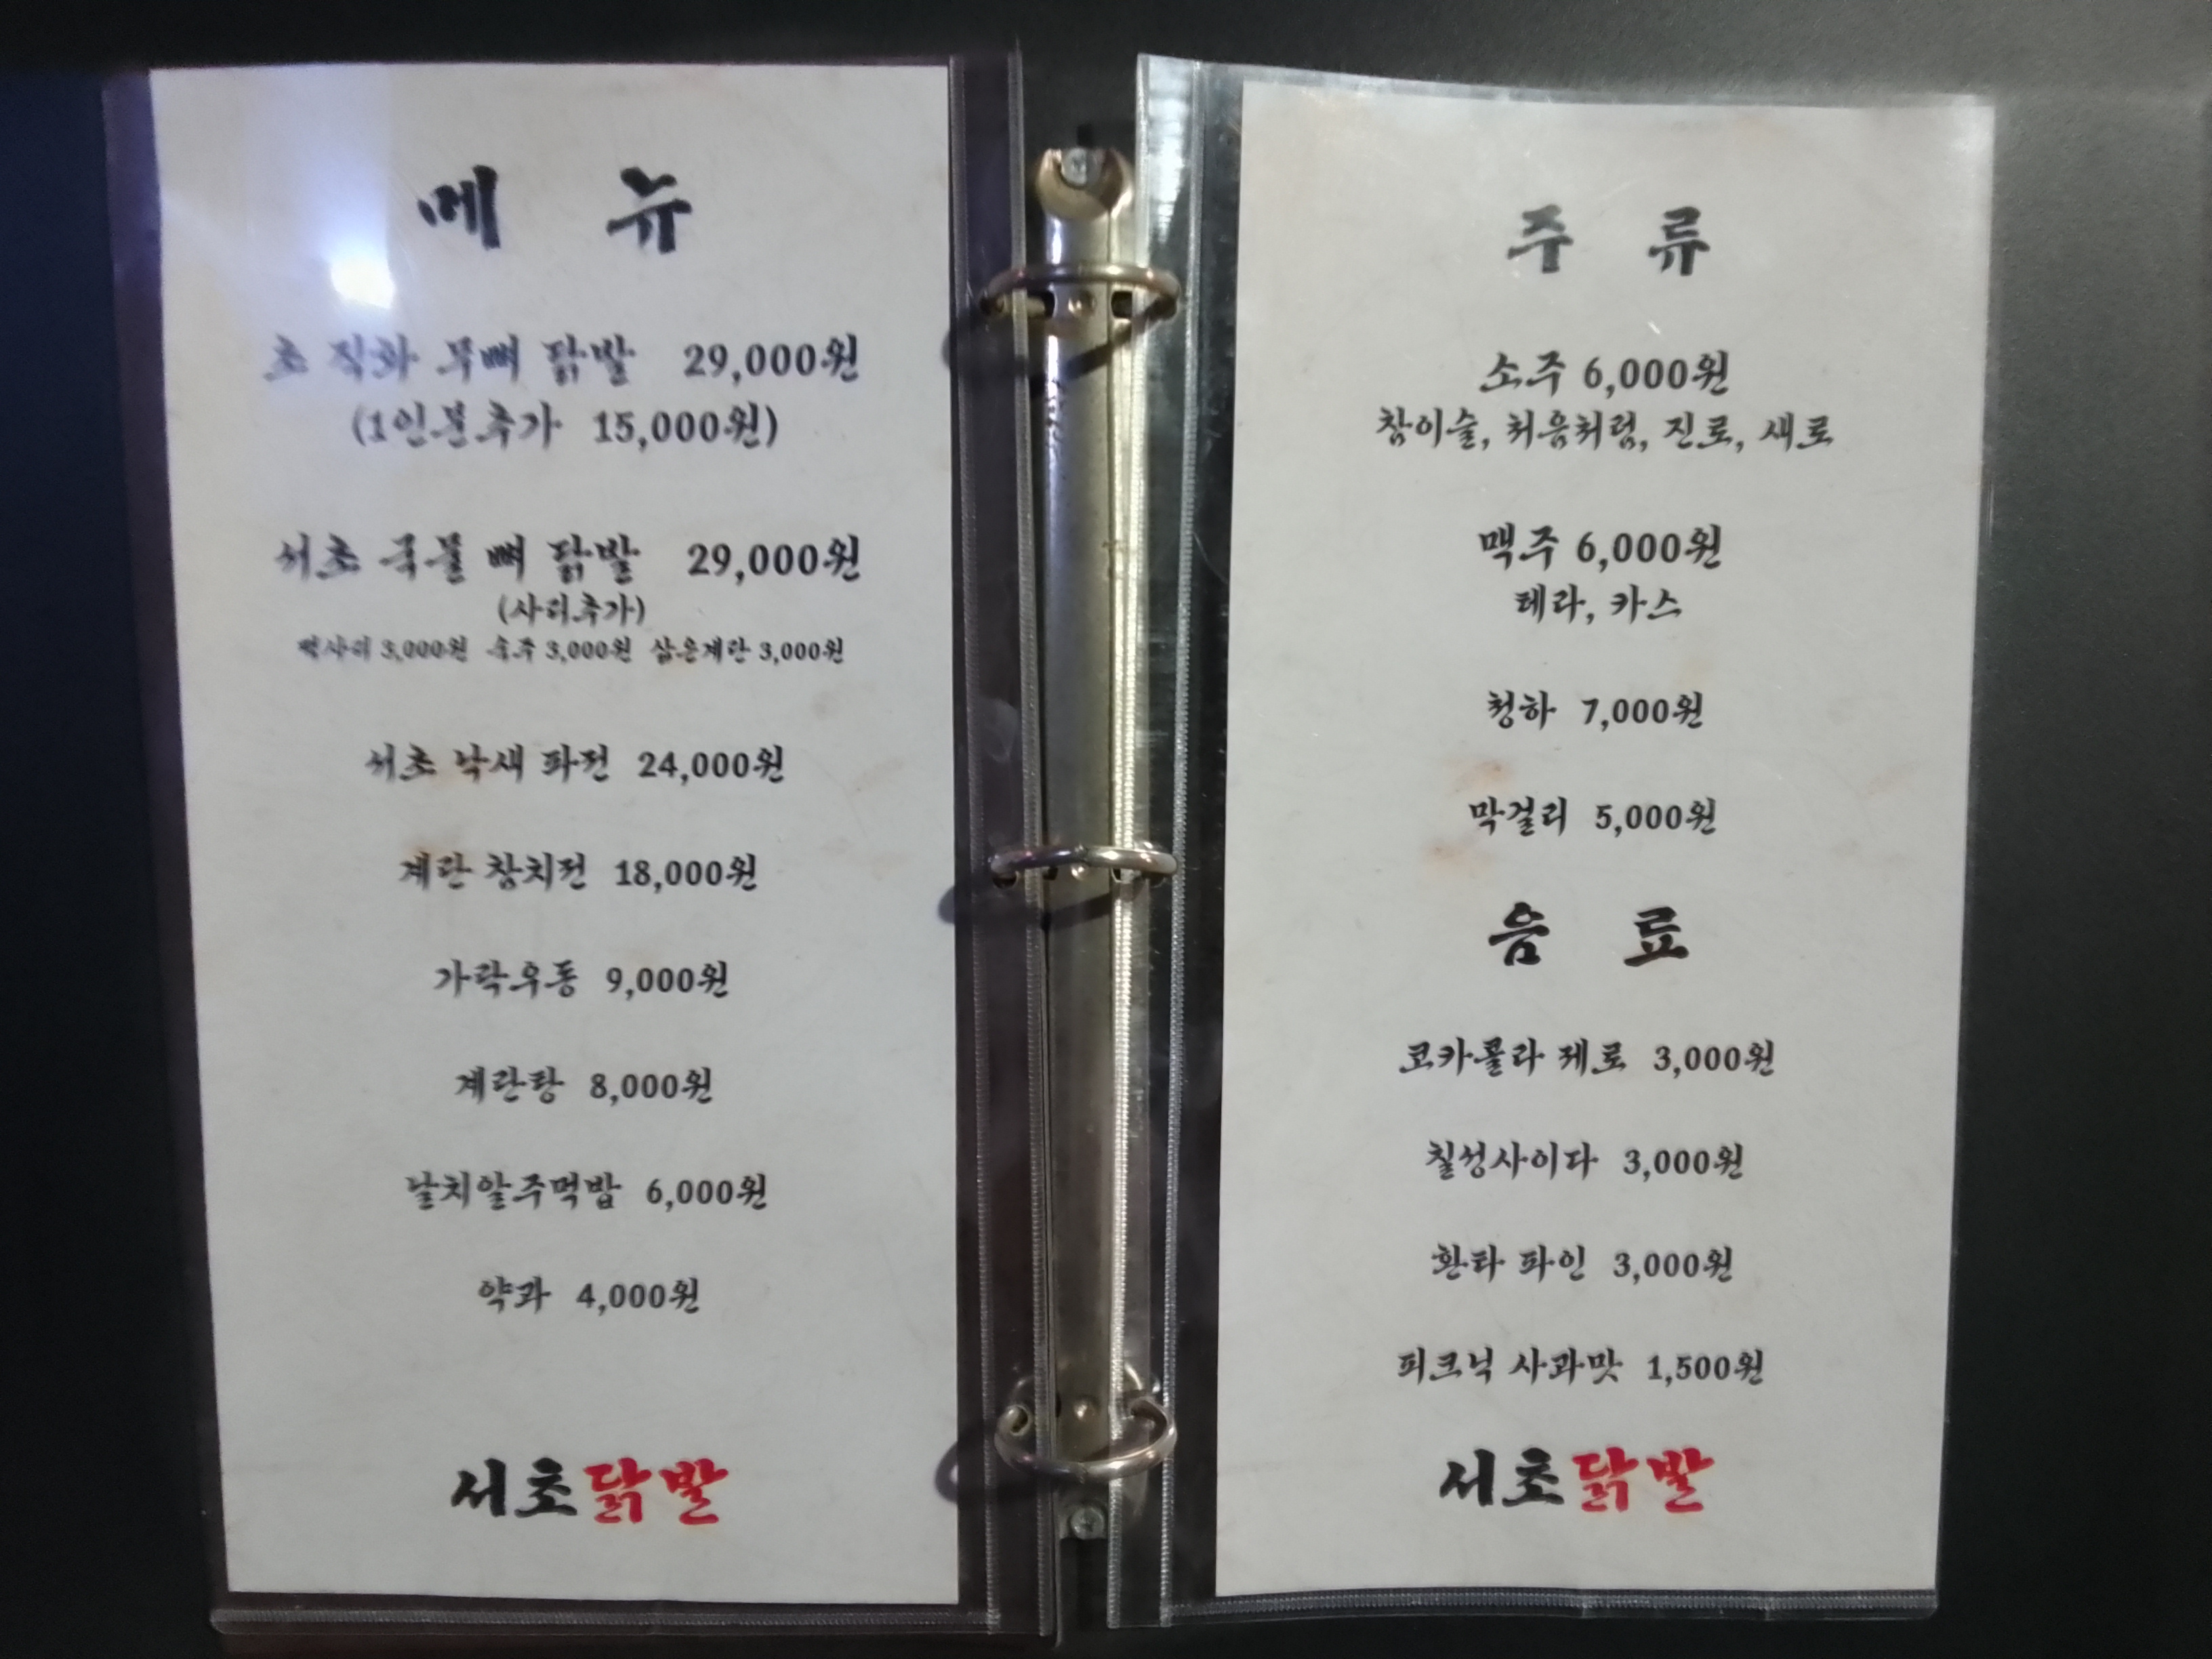 메 뉴
초 직화 무뼈 닭발 29,000원
(1인분추가 15,000원)
서초 국물 뼈 닭발 29,000원
(사리추가)
떡사리 3,000원 숙주 3,000원 삶은계란 3,000원
서초 낙새 파전 24,000원
계란 참치전 18,000원
가락우동 9,000원
계란탕 8,000원
날치알주먹밥 6,000원
약과 4,000원
서초닭발
주 류
소주 6,000원
참이슬, 처음처럼, 진로, 새로
맥주 6,000원
테라, 카스
청하 7,000원
막걸리 5,000원
음 료
코카콜라 제로 3,000원
칠성사이다 3,000원
환타 파인 3,000원
피크닉 사과맛 1,500원
서초닭발